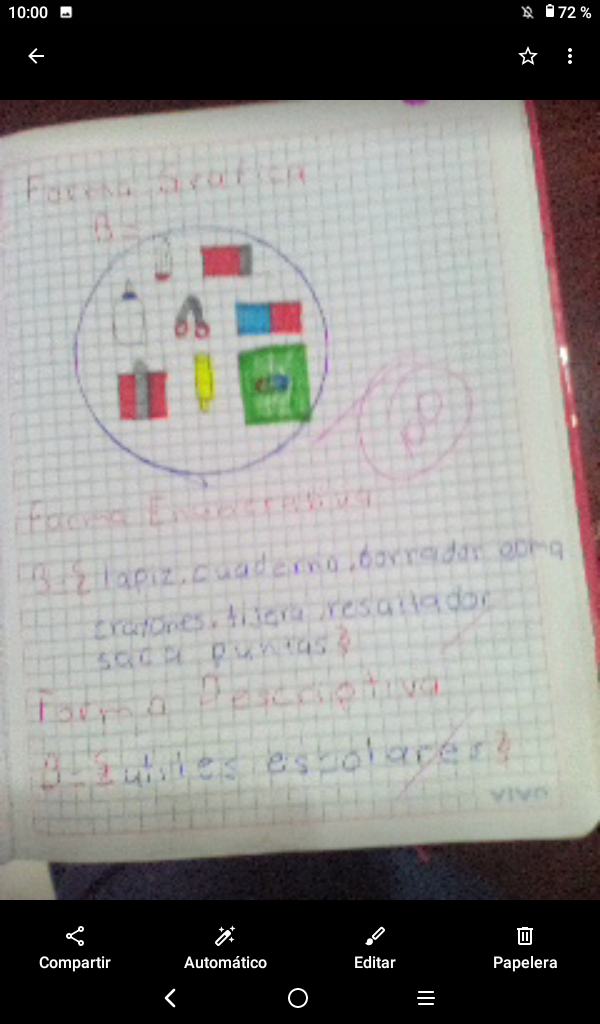 10:00
72 %
Forma Grafica
B=
Forma Enumerativa
B={ lapiz, cuaderno, borrador, goma
crayones, tijera, resaltador
saca puntas}
Forma Descriptiva
B={ utiles escolares}
vivo
Compartir
Automático
Editar
Papelera